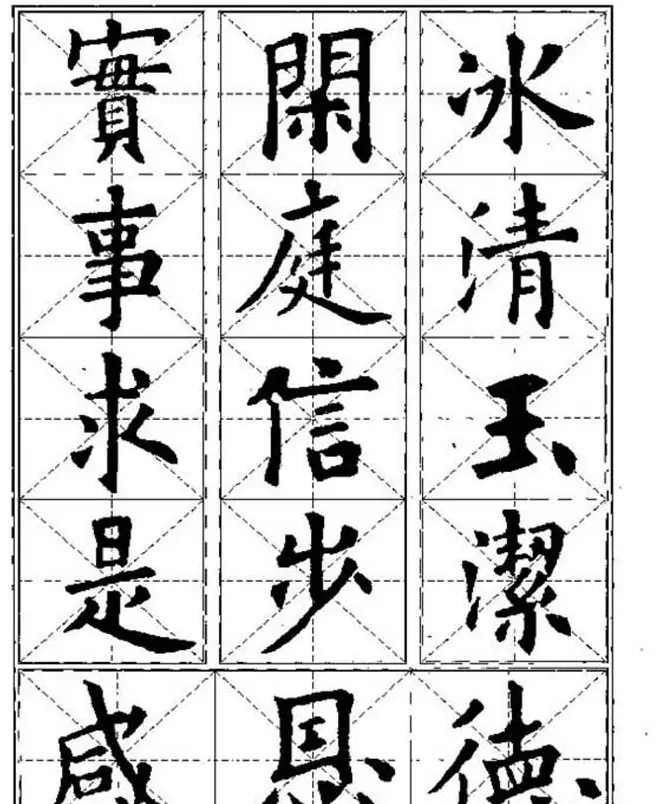 冰清玉潔
閑庭信步
實事求是
德
恩
感